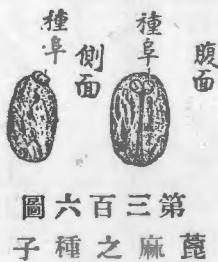 腹面
種阜
側面
種阜
第三百六圖
蓖麻之種子